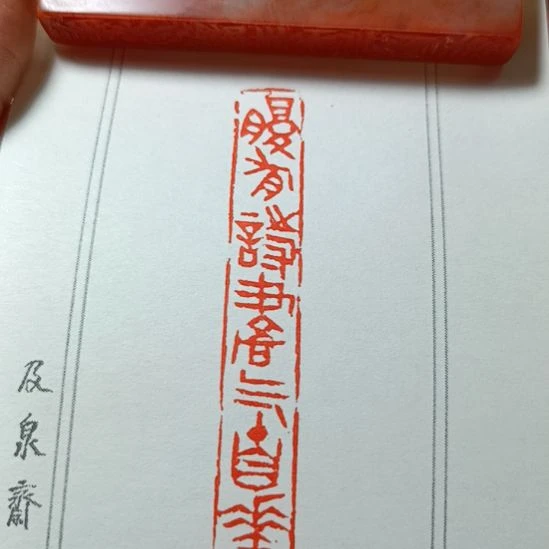 腹有詩書气自華
及泉齋